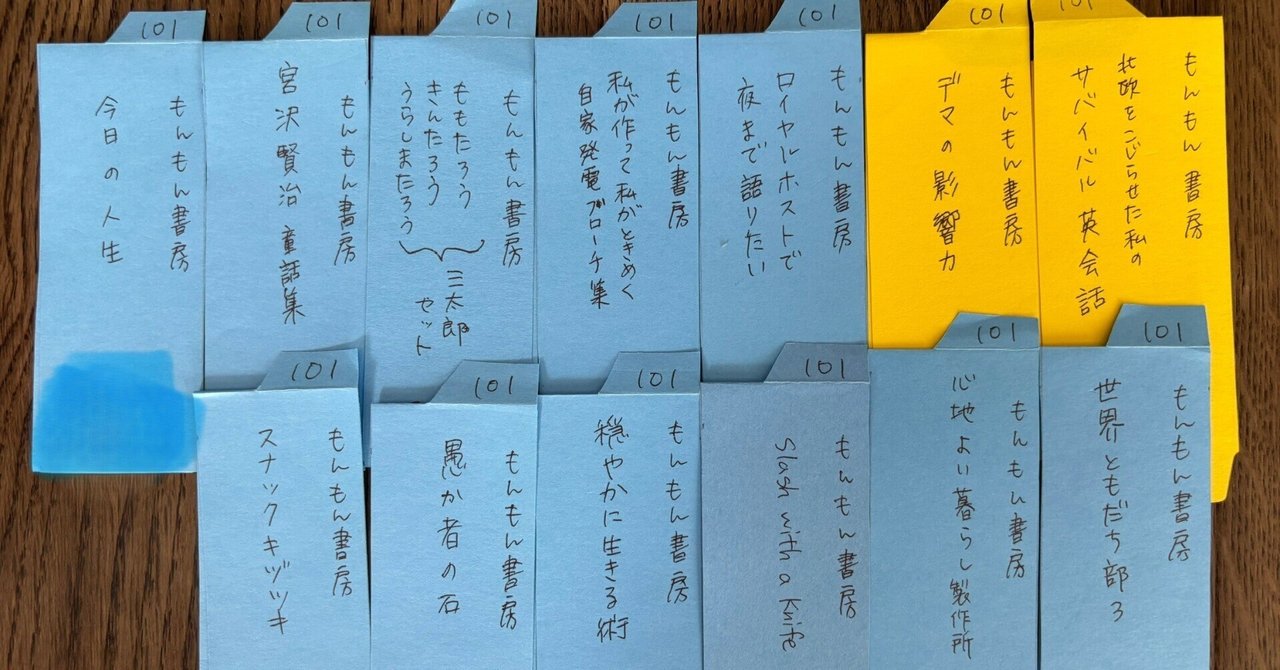 101
もんもん書房
北欧をこじらせた私の
サバイバル英会話
101
もんもん書房
デマの影響力
101
もんもん書房
ロイヤルホストで
夜まで語りたい
101
もんもん書房
私が作って私がときめく
自家発電ブローチ集
101
もんもん書房
ももたろう
きんたろう
うらしまたろう
三太郎
セット
101
もんもん書房
宮沢賢治 童話集
101
もんもん書房
今日の人生
101
もんもん書房
世界ともだち部3
101
もんもん書房
心地よい暮らし製作所
101
もんもん書房
Slash with a Knife
101
もんもん書房
穏やかに生きる術
101
もんもん書房
愚か者の石
101
もんもん書房
スナックキヅツキ